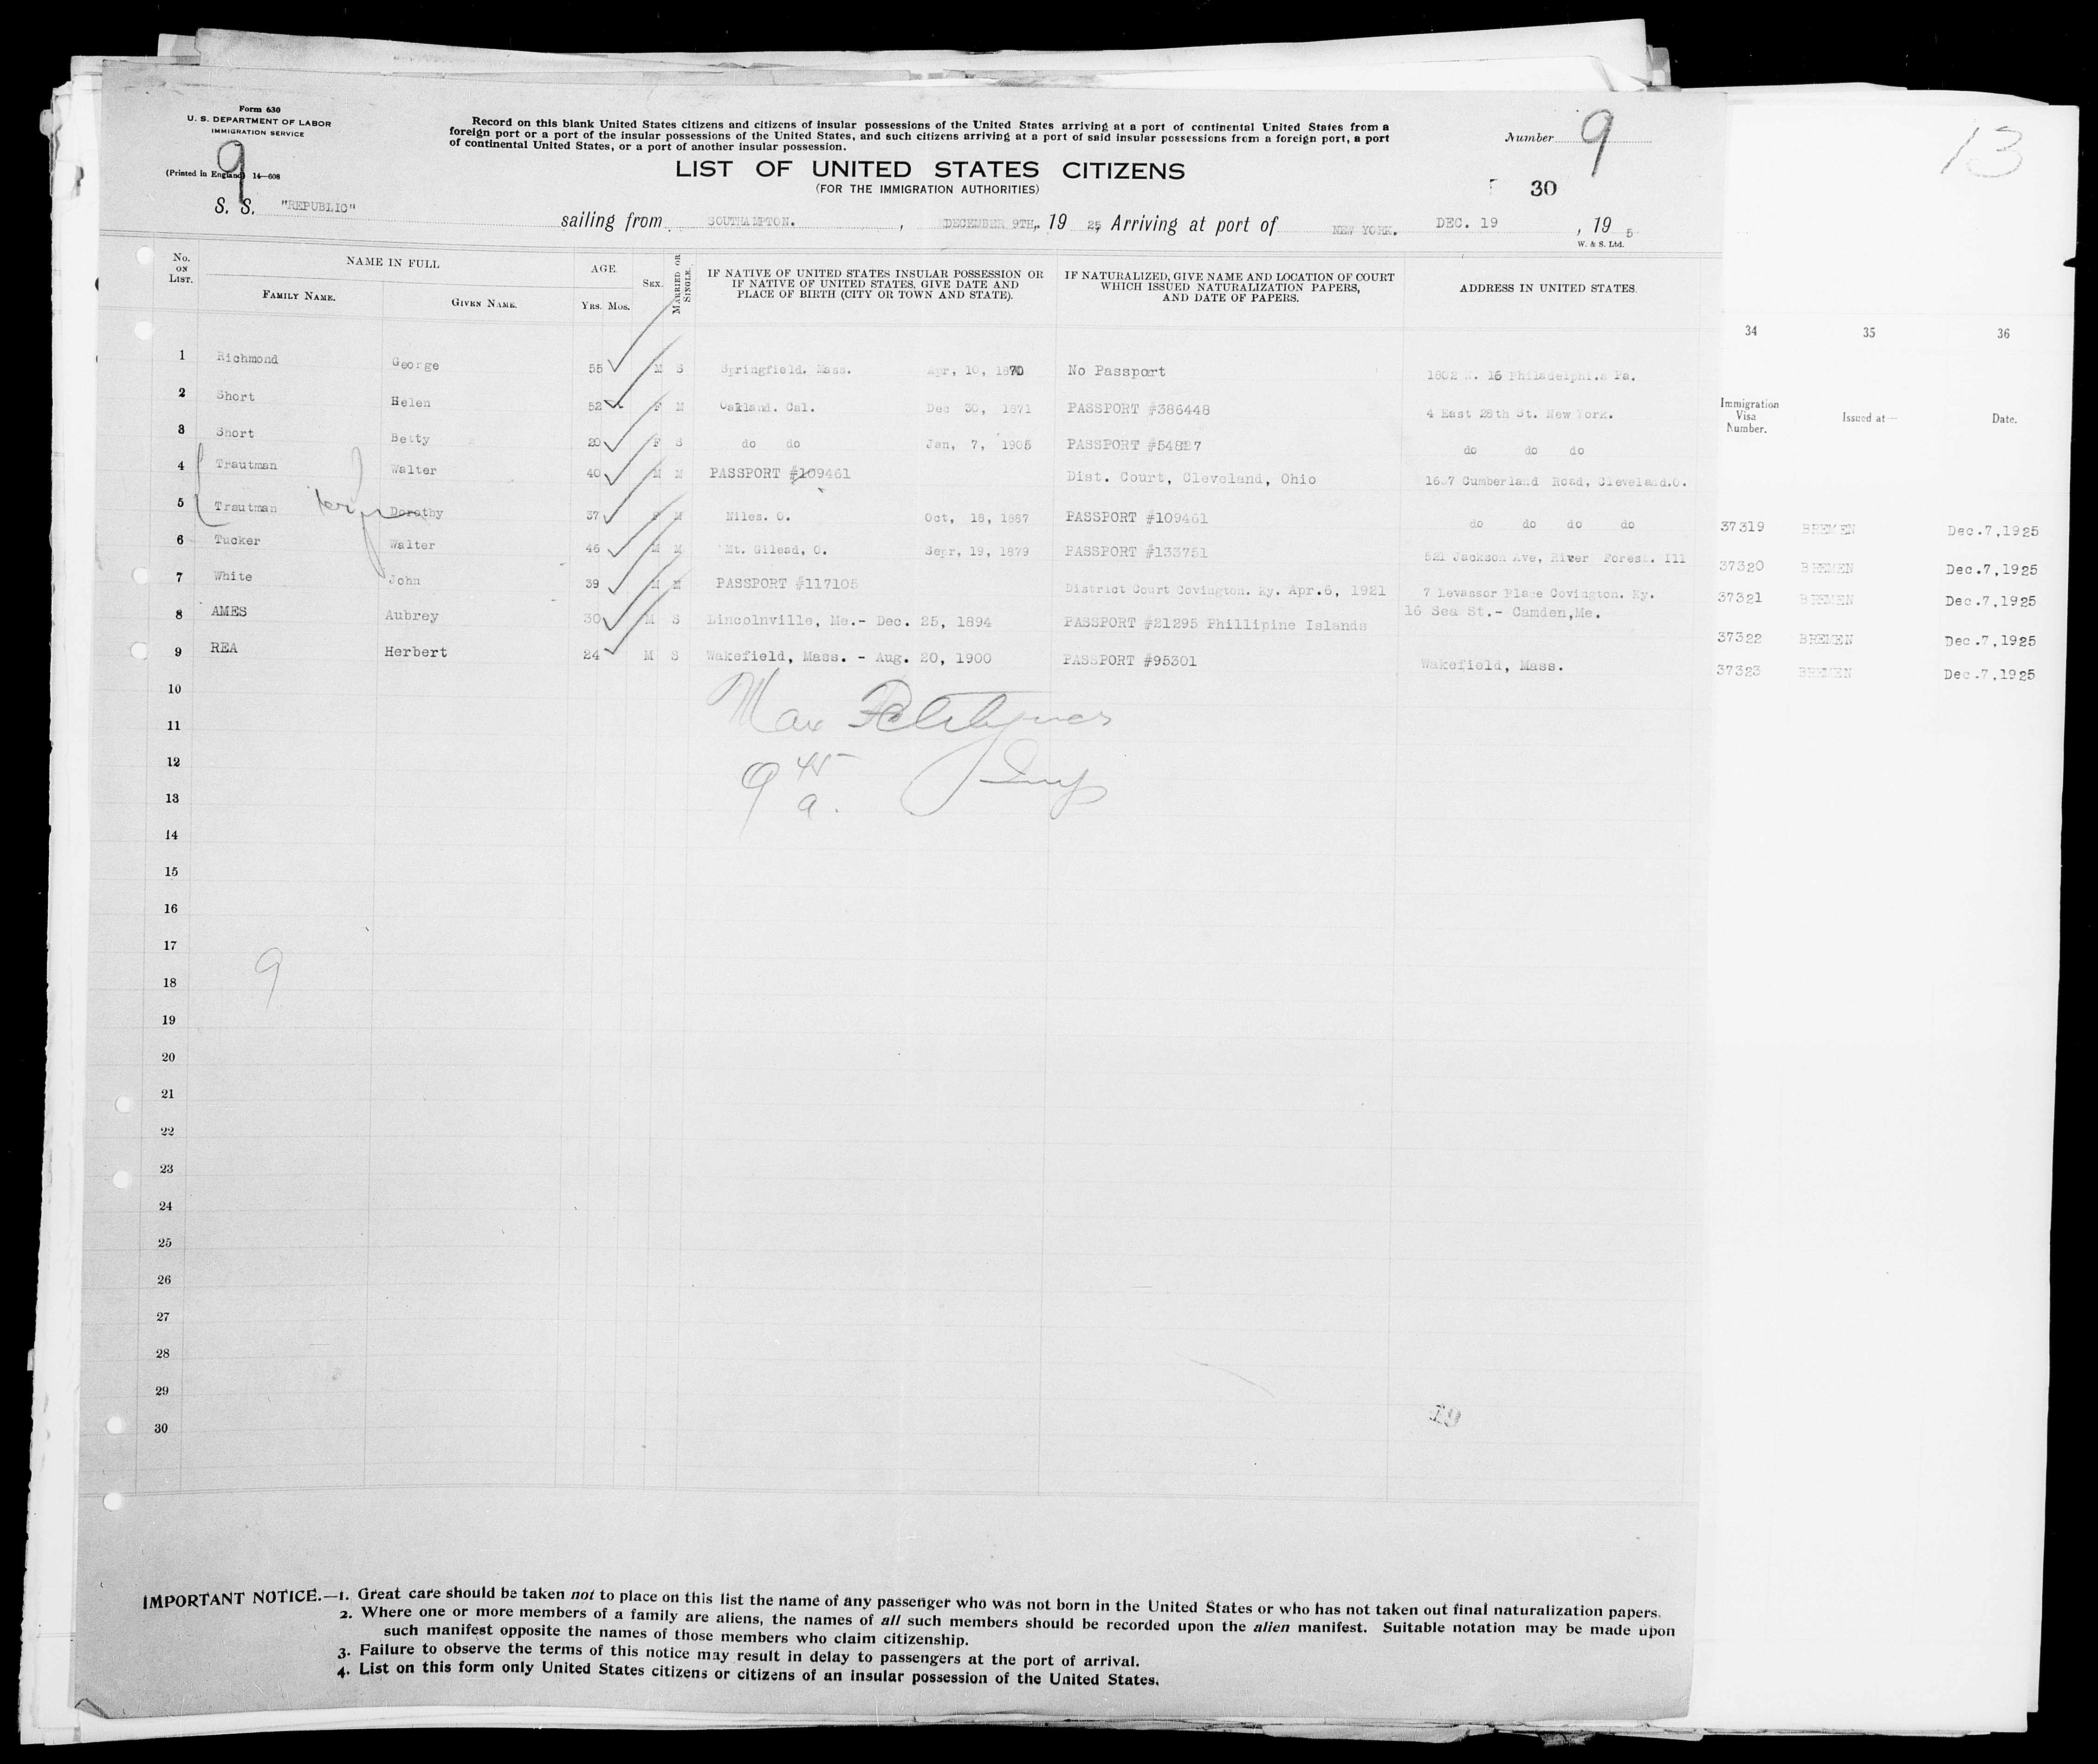 Form 630
U. S. DEPARTMENT OF LABOR
IMMIGRATION SERVICE
9
(Printed in England) 14—608
Record on this blank United States citizens and citizens of insular possessions of the United States arriving at a port of continental United States from a
foreign port or a port of the insular possessions of the United States, and such citizens arriving at a port of said insular possessions from a foreign port, a port
of continental United States, or a port of another insular possession.
Number 9
13
LIST OF UNITED STATES CITIZENS
(FOR THE IMMIGRATION AUTHORITIES)
30
S. S. "REPUBLIC" sailing from SOUTHAMPTON. , DECEMBER 9TH, 19 25, Arriving at port of NEW YORK. DEC. 19 , 19 5
W. & S. Ltd.
No. ON LIST. NAME IN FULL AGE. SEX. MARRIED OR SINGLE. IF NATIVE OF UNITED STATES INSULAR POSSESSION OR IF NATIVE OF UNITED STATES, GIVE DATE AND PLACE OF BIRTH (CITY OR TOWN AND STATE). IF NATURALIZED, GIVE NAME AND LOCATION OF COURT WHICH ISSUED NATURALIZATION PAPERS, AND DATE OF PAPERS. ADDRESS IN UNITED STATES.
FAMILY NAME. GIVEN NAME. YRS. MOS.
34 35 36
Immigration Visa Number. Issued at— Date.
1 Richmond George 55 M S Springfield. Mass. Apr, 10, 1870 No Passport 1802 N. 16 Philadelphi.a Pa.
2 Short Helen 52 F M Oakland. Cal. Dec 30, 1871 PASSPORT #386448 4 East 28th St. New York.
3 Short Betty 20 F S do do Jan, 7, 1905 PASSPORT #54827 do do do
4 Trautman Walter 40 M M PASSPORT #109461 Dist. Court, Cleveland, Ohio Cumberland Road, Cleveland.O.
5 Trautman Dorothy 37 F M Niles. O. Oct, 18, 1887 PASSPORT #109461 do do do do
6 Tucker Walter 46 M M Mt. Gilead, O. Sepr, 19, 1879 PASSPORT #133751 521 Jackson Ave, River Forest. Ill
7 White John 39 M M PASSPORT #117105 District Court Covington. Ky. Apr.6, 1921 7 Levassor Place Covington. Ky.
8 AMES Aubrey 30 M S Lincolnville, Me.- Dec. 25, 1894 PASSPORT #21295 Phillipine Islands 16 Sea St.- Camden,Me.
9 REA Herbert 24 M S Wakefield, Mass. - Aug. 20, 1900 PASSPORT #95301 Wakefield, Mass.
37319 BREMEN Dec.7,1925
37320 BREMEN Dec.7,1925
37321 BREMEN Dec.7,1925
37322 BREMEN Dec.7,1925
37323 BREMEN Dec.7,1925
10
Max
11
12
9 45 Insp
13
a.
14
15
16
17
9
18
19
20
21
22
23
24
25
26
27
28
29
19
30
IMPORTANT NOTICE.—1. Great care should be taken not to place on this list the name of any passenger who was not born in the United States or who has not taken out final naturalization papers.
2. Where one or more members of a family are aliens, the names of all such members should be recorded upon the alien manifest. Suitable notation may be made upon
such manifest opposite the names of those members who claim citizenship.
3. Failure to observe the terms of this notice may result in delay to passengers at the port of arrival.
4. List on this form only United States citizens or citizens of an insular possession of the United States.